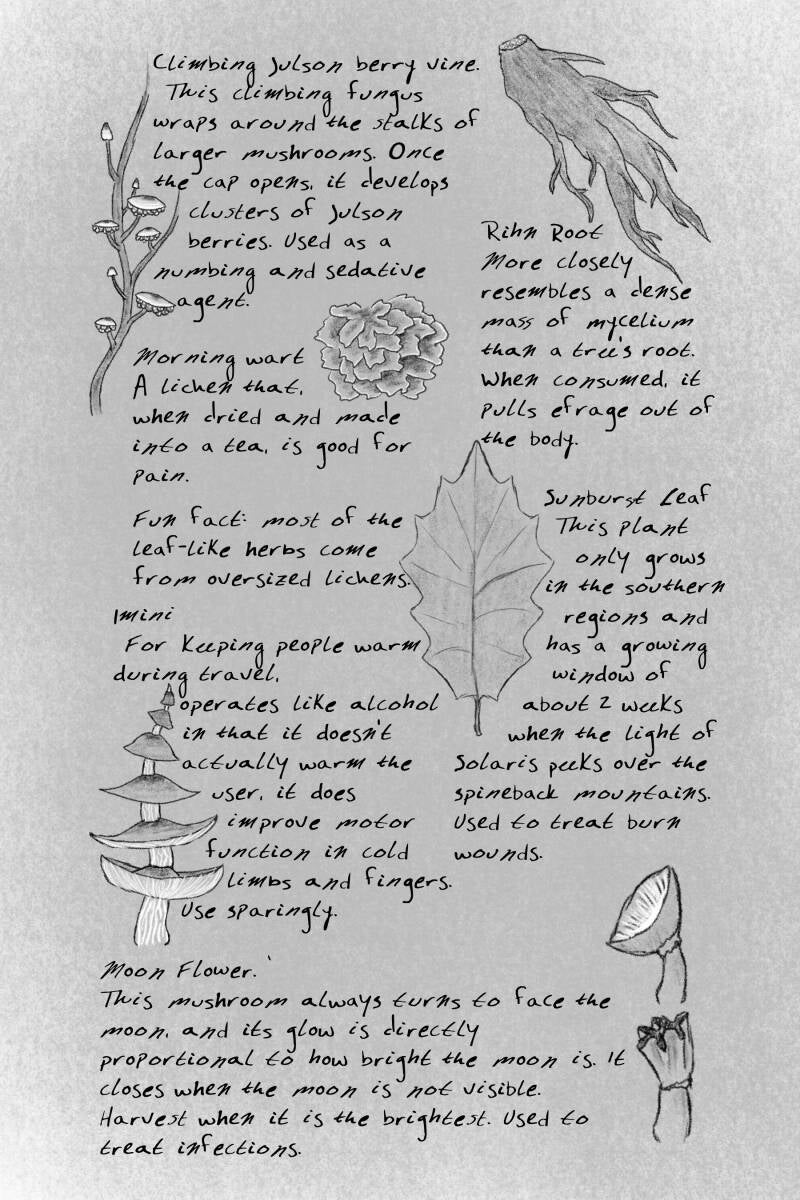 Climbing Julson berry vine.
This climbing fungus
wraps around the stalks of
larger mushrooms. Once
the cap opens, it develops
clusters of Julson
berries. Used as a
numbing and sedative
agent.
Rihn Root
More closely
resembles a dense
mass of mycelium
than a tree's root.
When consumed, it
pulls efrage out of
the body.
Morning wart
A lichen that,
when dried and made
into a tea, is good for
pain.
Fun fact: most of the
leaf-like herbs come
from oversized lichens.
Sunburst Leaf
This plant
only grows
in the southern
regions and
has a growing
window of
about 2 weeks
when the light of
Solaris peeks over the
spineback mountains.
Used to treat burn
wounds.
Imini
For keeping people warm
during travel,
operates like alcohol
in that it doesn't
actually warm the
user, it does
improve motor
function in cold
limbs and fingers.
Use sparingly.
Moon Flower.
This mushroom always turns to face the
moon, and its glow is directly
proportional to how bright the moon is. It
closes when the moon is not visible.
Harvest when it is the brightest. Used to
treat infections.